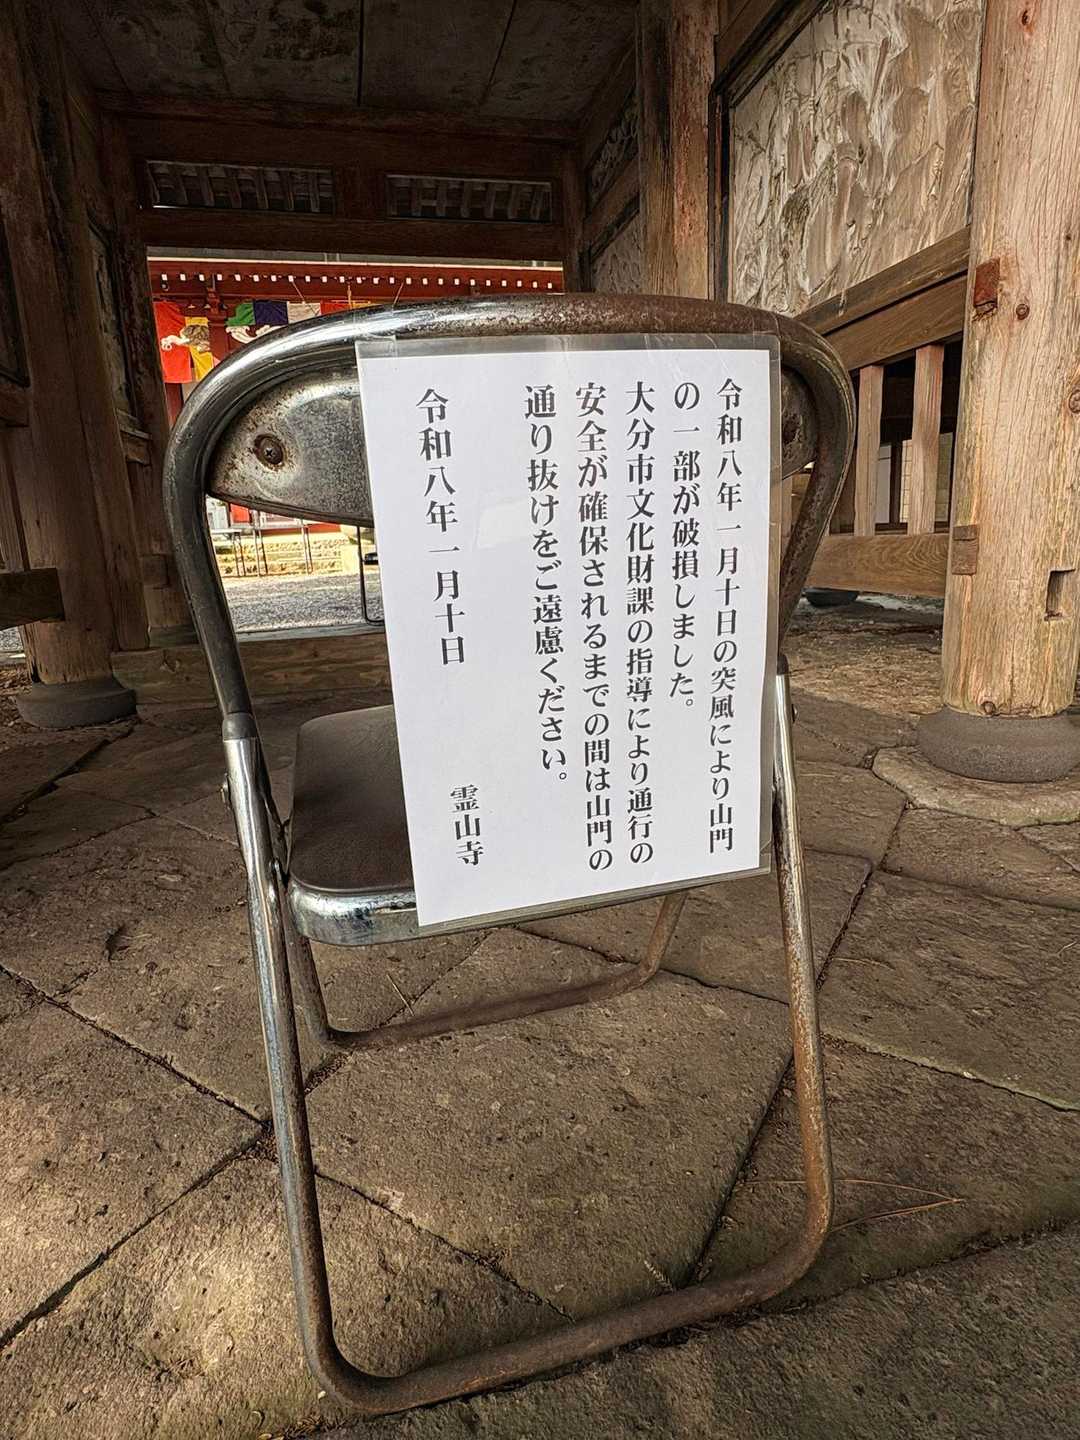 令和八年一月十日の突風により山門
の一部が破損しました。
大分市文化財課の指導により通行の
安全が確保されるまでの間は山門の
通り抜けをご遠慮ください。
令和八年一月十日
霊山寺